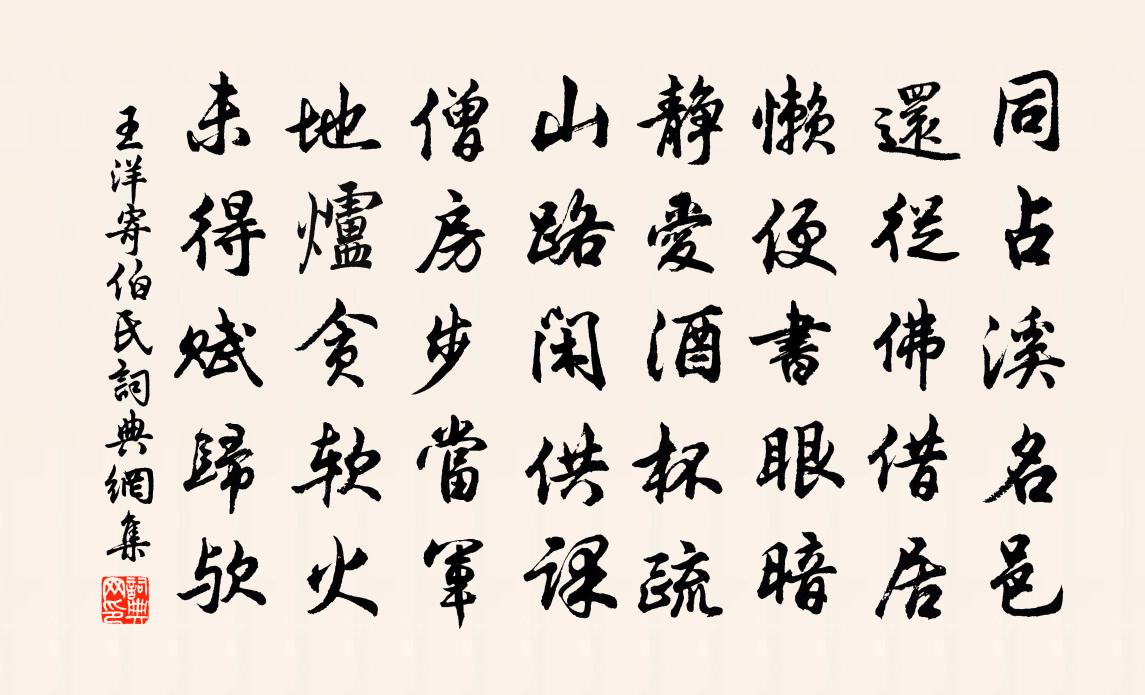 同占溪名邑
還從佛借居
懶便書眼暗
靜愛酒杯疏
山路閑供課
僧房步當軍
地爐貪軟火
未得賦歸歟
王洋寄伯氏詞典網集
詞典网印